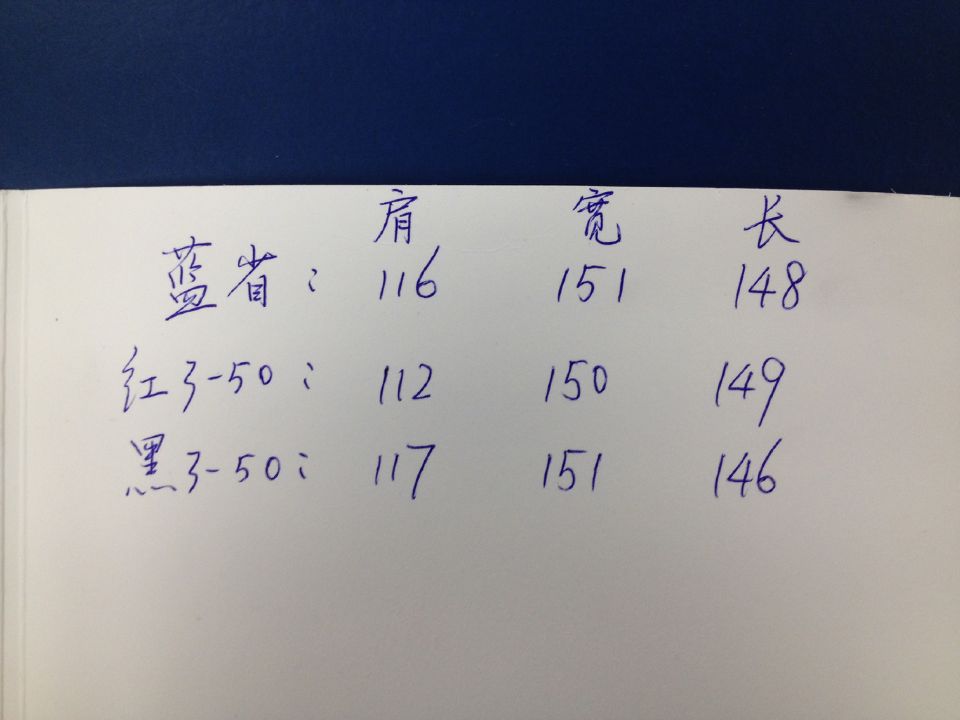 肩 宽 长
蓝省: 116 151 148
红3-50: 112 150 149
黑3-50: 117 151 146